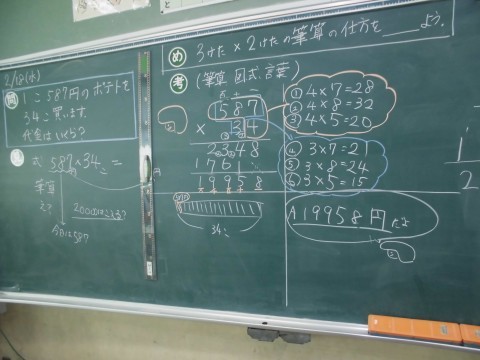 2/18(水)
問 1こ587円のポテトを
34こ買います。
代金はいくら?
式 587×34 =
筆算
20000こえる?
め 3けた×2けたの筆算の仕方を____よう。
考 (筆算 図 式 言葉)
587
× 34
2348
1761
19958
34こ
① 4×7=28
② 4×8=32
③ 4×5=20
④ 3×7=21
⑤ 3×8=24
⑥ 3×5=15
A 19958円だよ
1
2